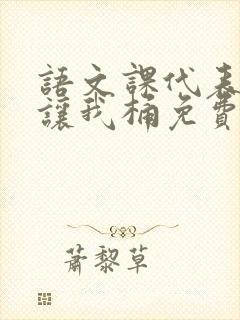 語文課代表
讓我桶免費
蕭黎草